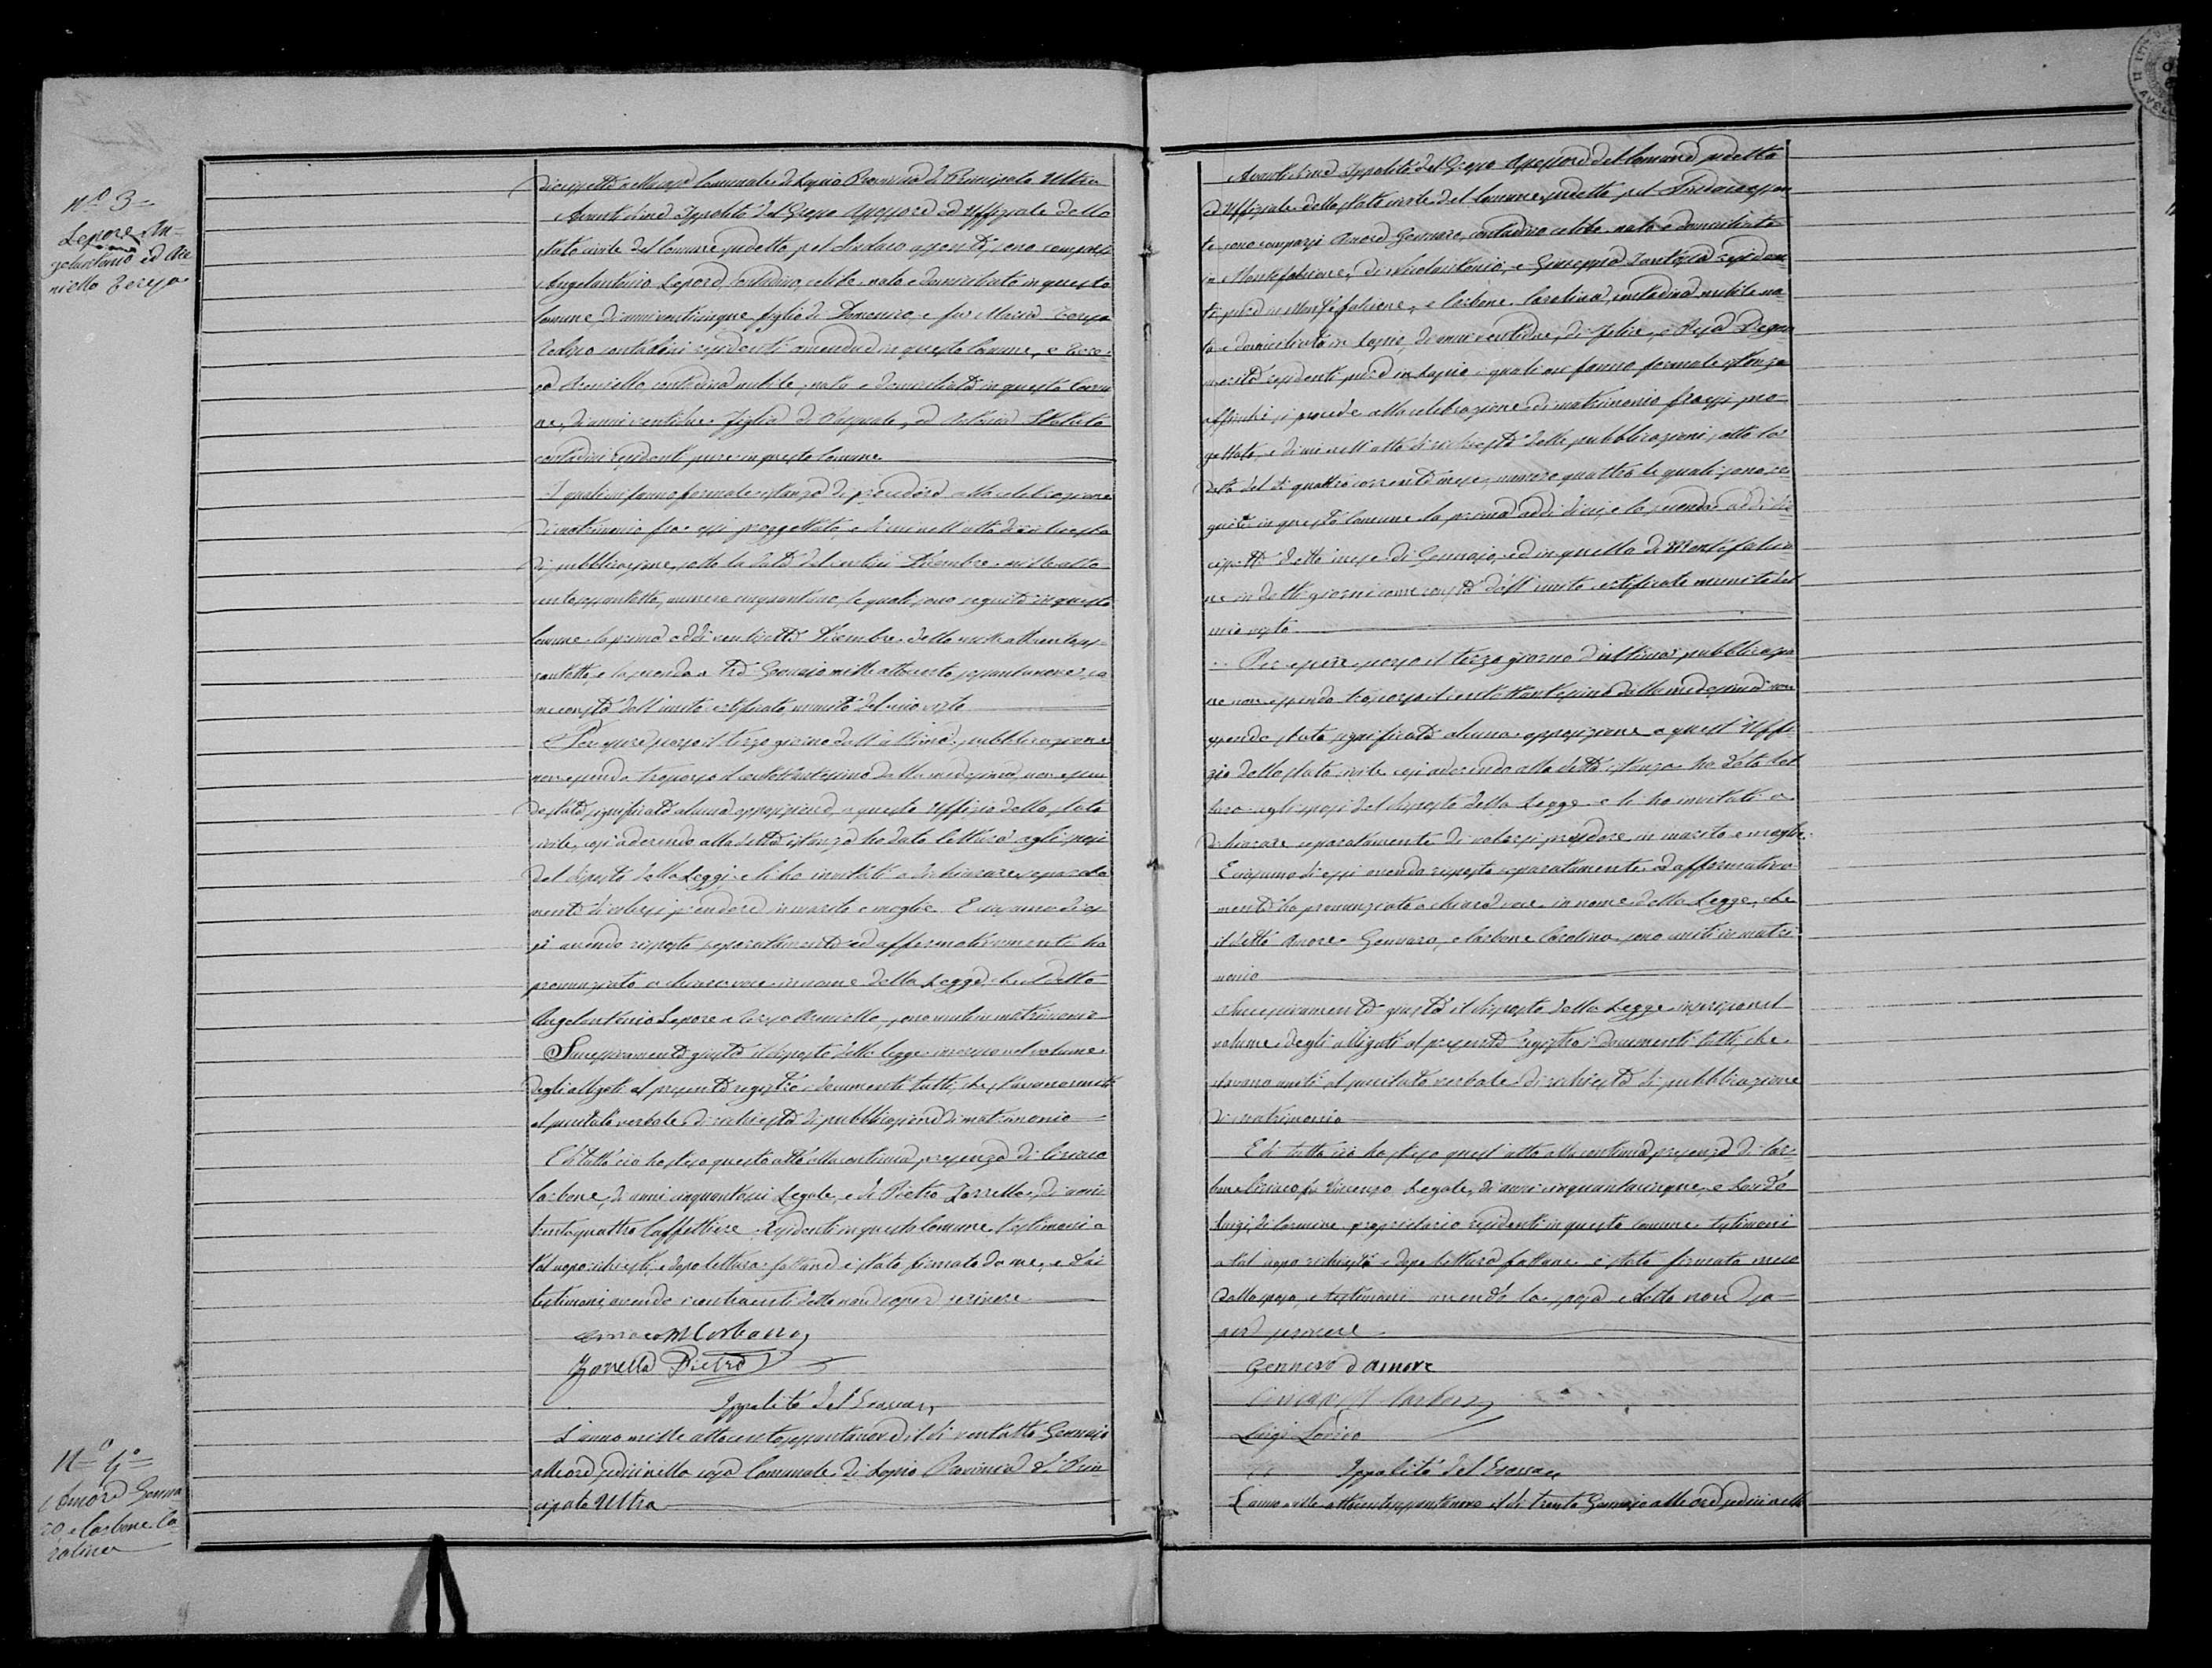 Nº 3
Lepore An-
gelantonio ed Au-
niello Teresa
diciassette nella casa Comunale di Lapio Provincia di Principato Ultra
Avanti di me Ippolito del Grosso Assessore ed Uffiziale dello
stato civile del Comune sudetto, pel Sindaco assente, sono comparsi
Angelantonio Lepore, contadino, celibe, nato e domiciliato in questo
Comune, di anni venticinque figlio di Domenico, e fu Maria Teresa
contadini residenti amendue in questo Comune, e Tere-
sa Auniello, contadina nubile, nata e domiciliata in questo Comu
ne, di anni ventidue figlia di Pasquale, ed Antonia
contadini residenti pure in questo Comune
I quali mi fanno formale istanza di procedere alla celebrazione
di matrimonio fra essi proggettato, e di cui nell'atto di richiesta
di pubblicazione, sotto la data del Dicembre mille otto
cento sessantotto, numero cinquantuno, le quali sono seguite in questo
Comune la prima addì ventisette Dicembre detto mille ottocento ses-
santotto, e la seconda a tre Gennajo mille ottocento sessantanove, co
me consta dall'unito certificato munito del mio visto
Per essere scorso il terzo giorno dall'ultima pubblicazione
non essendo trascorso il centottantesimo dalla medesima, non essen
do stata significata alcuna opposizione, a questo Uffizio dello stato
civile, così aderendo alla detta istanza ho dato lettura agli sposi
del disposto della Legge, e li ho invitati a dichiarare separata
mente di volersi prendere in marito e moglie. E ciascuno di es
si avendo risposto separatamente ed affermativamente ho
pronunziato a chiara voce in nome della Legge, che il detto
Angelantonio Lepore e Teresa Auniello, sono uniti in matrimonio
Successivamente giusta il disposto della legge inserisco nel volume
degli allegati al presente registro i documenti tutti, che stavano uniti
al precitato verbale di richiesta di pubblicazione di matrimonio
E di tutto ciò ho steso questo atto alla continua presenza di Ciriaco
Carbone, di anni cinquantasei Legale, e di Pietro Zarrella, di anni
trentaquattro Caffettiere residenti in questo Comune testimoni a
tal uopo richiesti, e dopo lettura fattane è stato firmato da me, e dai
testimoni, avendo i contraenti detto non saper scrivere
Ciriaco M Carbone
Zarrella Pietro
Ippolito del Grosso
L'anno mille ottocento sessantanove il dì ventotto Gennajo
alle ore sedici nella casa Comunale di Lapio Provincia di Prin
cipato Ultra
Nº 4º
Amore Genna
ro e Carbone Ca
rolina
Avanti di me Ippolito del Grosso Assessore del Comune sudetto
ed Uffiziale dello stato civile del Comune sudetto, pel Sindaco assen
te sono comparsi Amore Gennaro, contadino celibe nato e domiciliato
in Montefalcione, di Nicolantonio, e Giuseppa residen
ti pure in Montefalcione, e Carbone Carolina contadina nubile na
ta e domiciliata in Lapio, di anni ventidue, di Felice, e
residenti pure in Lapio i quali mi fanno formale istanza
affinchè si procede alla celebrazione di matrimonio fra essi pro
gettato, e di cui nell'atto di richiesta delle pubblicazioni, sotto la
data del dì quattro corrente mese, numero quattro le quali sono se
guite in questo Comune la prima addì dieci e la seconda addì di
cissette detto mese di Gennajo, ed in quello di Montefalcio
ne in detti giorni come consta dall'unito certificato munito del
mio visto
Per essere scorso il terzo giorno d'ultima pubblicazio
ne non essendo trascorso il centottantesimo dalla medesima non
essendo stata significata alcuna opposizione a quest'Uffi
zio dello stato civile così aderendo alla detta istanza ho dato let
tura agli sposi del disposto della Legge e li ho invitati a
dichiarare separatamente di volersi prendere in marito e moglie.
E ciascuno di essi avendo risposto separatamente ed affermativa
mente ho pronunziato a chiara voce in nome della Legge, che
il detto Amore Gennaro, e Carbone Carolina sono uniti in matri
monio
Successivamente giusta il disposto della Legge inserisco nel
volume degli allegati al presente registro i documenti tutti, che
stavano uniti al precitato verbale di richiesta di pubblicazione
di matrimonio
E di tutto ciò ho steso quest'atto alla continua presenza di Car
bone Ciriaco fu Vincenzo Legale, di anni cinquantacinque, e Lo
Luigi di Carmine proprietario residenti in questo Comune testimoni
a tal uopo richiesti e dopo lettura fattane è stato firmato meco
dallo sposo, e testimoni avendo la sposa detto non sa
per scrivere
Gennero d'Amore
Ciriaco M Carbone
Luigi
Ippolito del Grosso
L'anno mille ottocentosessantanove il dì trenta Gennajo alle ore sedici nella